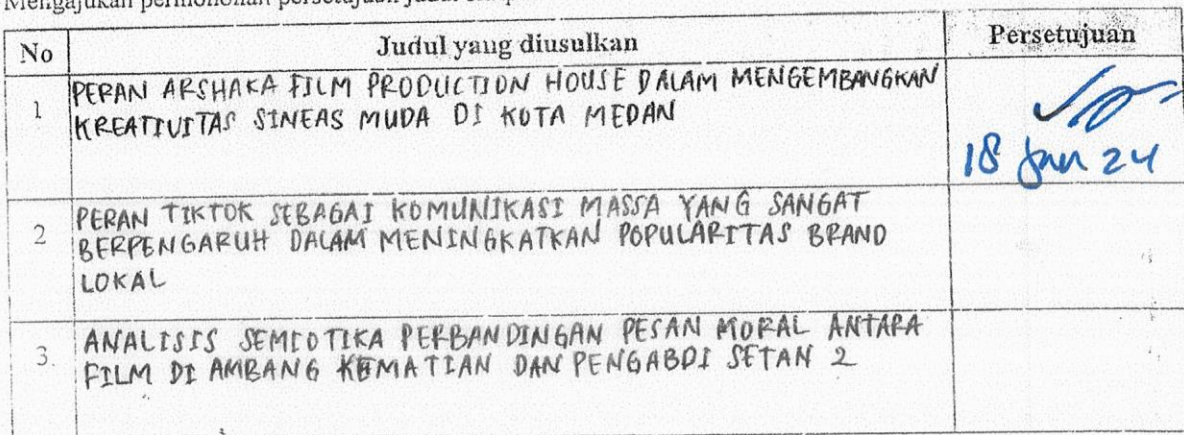 Mengajukan permohonan persetujuan judul
No Judul yang diusulkan Persetujuan
1 PERAN ARSHAKA FILM PRODUCTION HOUSE DALAM MENGEMBANGKAN
KREATIVITAS SINEAS MUDA DI KOTA MEDAN
18 Jan 24
2 PERAN TIKTOK SEBAGAI KOMUNIKASI MASSA YANG SANGAT
BERPENGARUH DALAM MENINGKATKAN POPULARITAS BRAND
LOKAL
3. ANALISIS SEMIOTIKA PERBANDINGAN PESAN MORAL ANTARA
FILM DI AMBANG KEMATIAN DAN PENGABDI SETAN 2